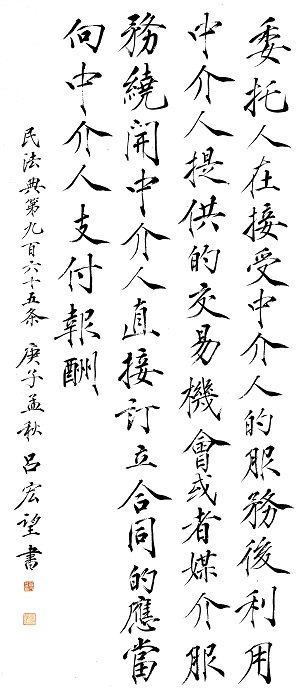 委托人在接受中介人的服務後利用
中介人提供的交易機會或者媒介服
務繞開中介人直接订立合同的應當
向中介人支付報酬
民法典第九百六十五条 庚子孟秋 吕宏望書